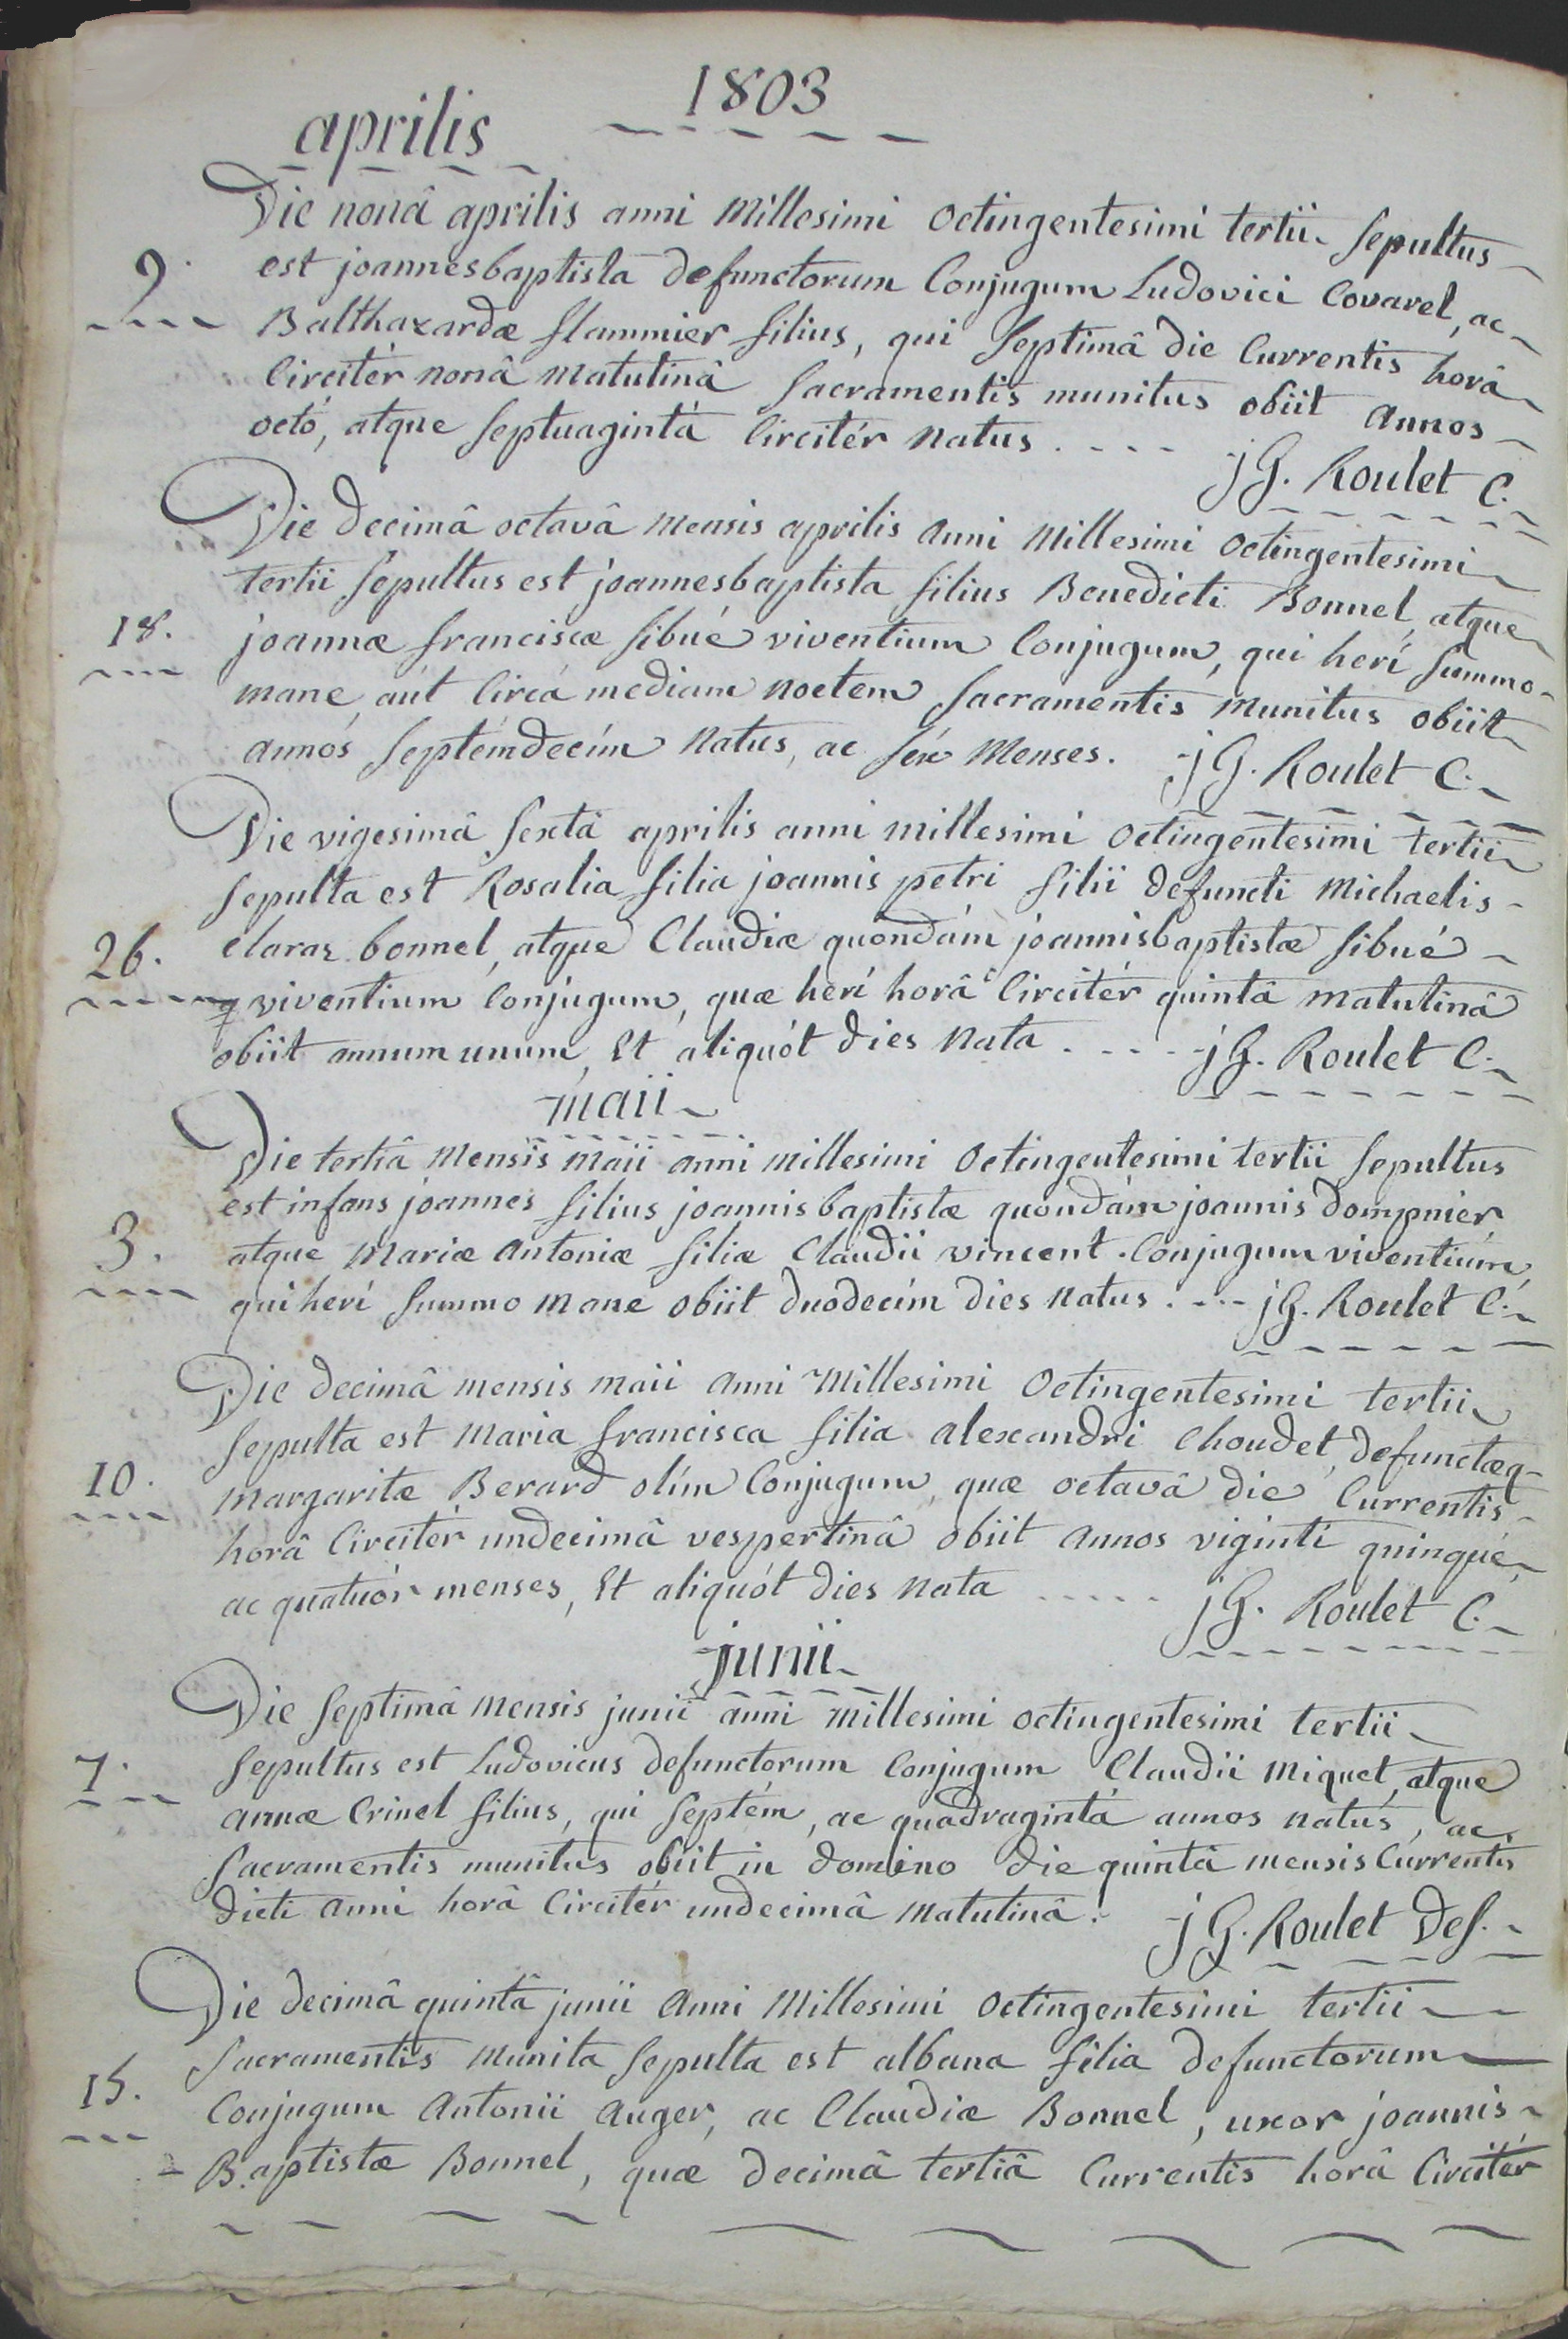 1803
aprilis
Die nonâ aprilis anni Millesimi octingentesimi tertii sepultus
9. est joannesbaptista defunctorum Conjugum Ludovici Covarel, ac
Balthazardæ flammier filius, qui septimâ die Currentis horâ
Circitér nonâ matutinâ sacramentis munitus obiit annos
octó, atque septuagintá Circitér natus....
jG. Roulet C.
Die decimâ octavâ mensis aprilis anni Millesimi octingentesimi
tertii sepultus est joannesbaptista filius Benedicti Bonnel, atque
18. joannæ franciscæ sibué viventium Conjugum, qui herí summo
mane, aút Circá mediam noctem sacramentis munitus obiit
annós septémdecím natus, ac séx menses. jG. Roulet C.
Die vigesimâ sextâ aprilis anni millesimi octingentesimi tertii
sepulta est Rosalia filia joannis petri filii defuncti Michaelis
26. claraz bonnel, atque Claudiæ quondám joannisbaptistæ sibué
viventium Conjugum, quæ herí horâ Circitér quintâ matutinâ
obiit annum unum, Et aliquót dies nata.... jG. Roulet C.
maii
Die tertiâ mensis maii anni millesimi octingentesimi tertii sepultus
est infans joannes filius joannis baptistæ quondám joannis dompnier
3. atque Mariæ antoniæ filiæ Claudii vincent. Conjugum viventium,
qui herí summo mane obiit duodecím dies natus.... jG. Roulet C.
Die decimâ mensis maii anni Millesimi octingentesimi tertii
sepulta est Maria francisca filia alexandri Choudet, defunctæq
10. margaritæ Berard olím Conjugum, quæ octavâ die Currentis
horâ Circitér undecimâ vespertinâ obiit annos vigintí quinqué,
ac quatuór menses, Et aliquót dies nata ..... jG. Roulet C.
junii
Die septimâ mensis junii anni millesimi octingentesimi tertii
7. sepultus est Ludovicus defunctorum Conjugum Claudii Miquet, atque
annæ Crinel filius, qui septém, ac quadragintá annos natus, ac
sacramentis munitus obiit in domino die quintâ mensis Currentis
dicti anni horâ Circitér undecimâ matutinâ. jG. Roulet Des.
Die decimâ quintâ junii anni Millesimi octingentesimi tertii
sacramentis munita sepulta est albana filia defunctorum
15. Conjugum antonii auger, ac Claudiæ Bonnel, uxor joannis
Baptistæ Bonnel, quæ decimâ tertiâ Currentis horâ Circitér